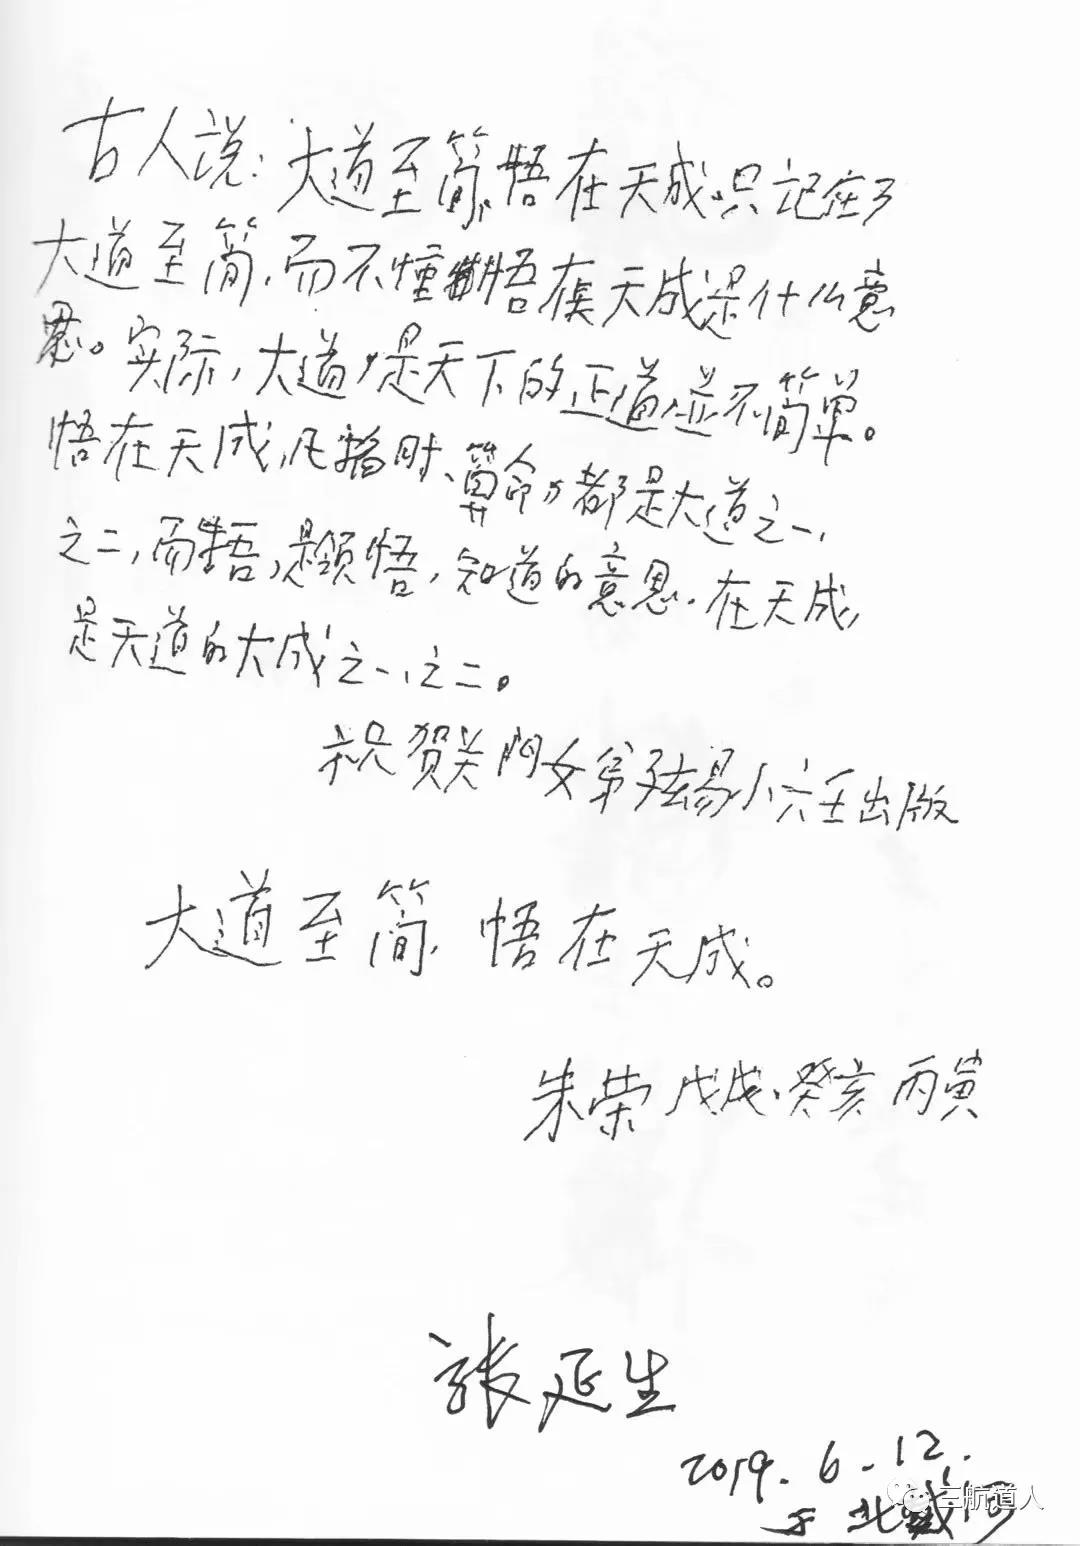 古人说：大道至简，悟在天成。只记在了
大道至简，而不懂悟在天成是什么意
思。实际，大道，是天下的正道，並不简单。
悟在天成，凡 时、算命，都是大道之一，
之二，而悟，是领悟，知道的意思。在天成，
是天道的大成之一，之二。
祝贺关门女弟子弦易小六壬出版
大道至简，悟在天成。
朱荣 戊戌、癸亥 丙寅
张延生
2019.6.12.
于北戴河
三航道人